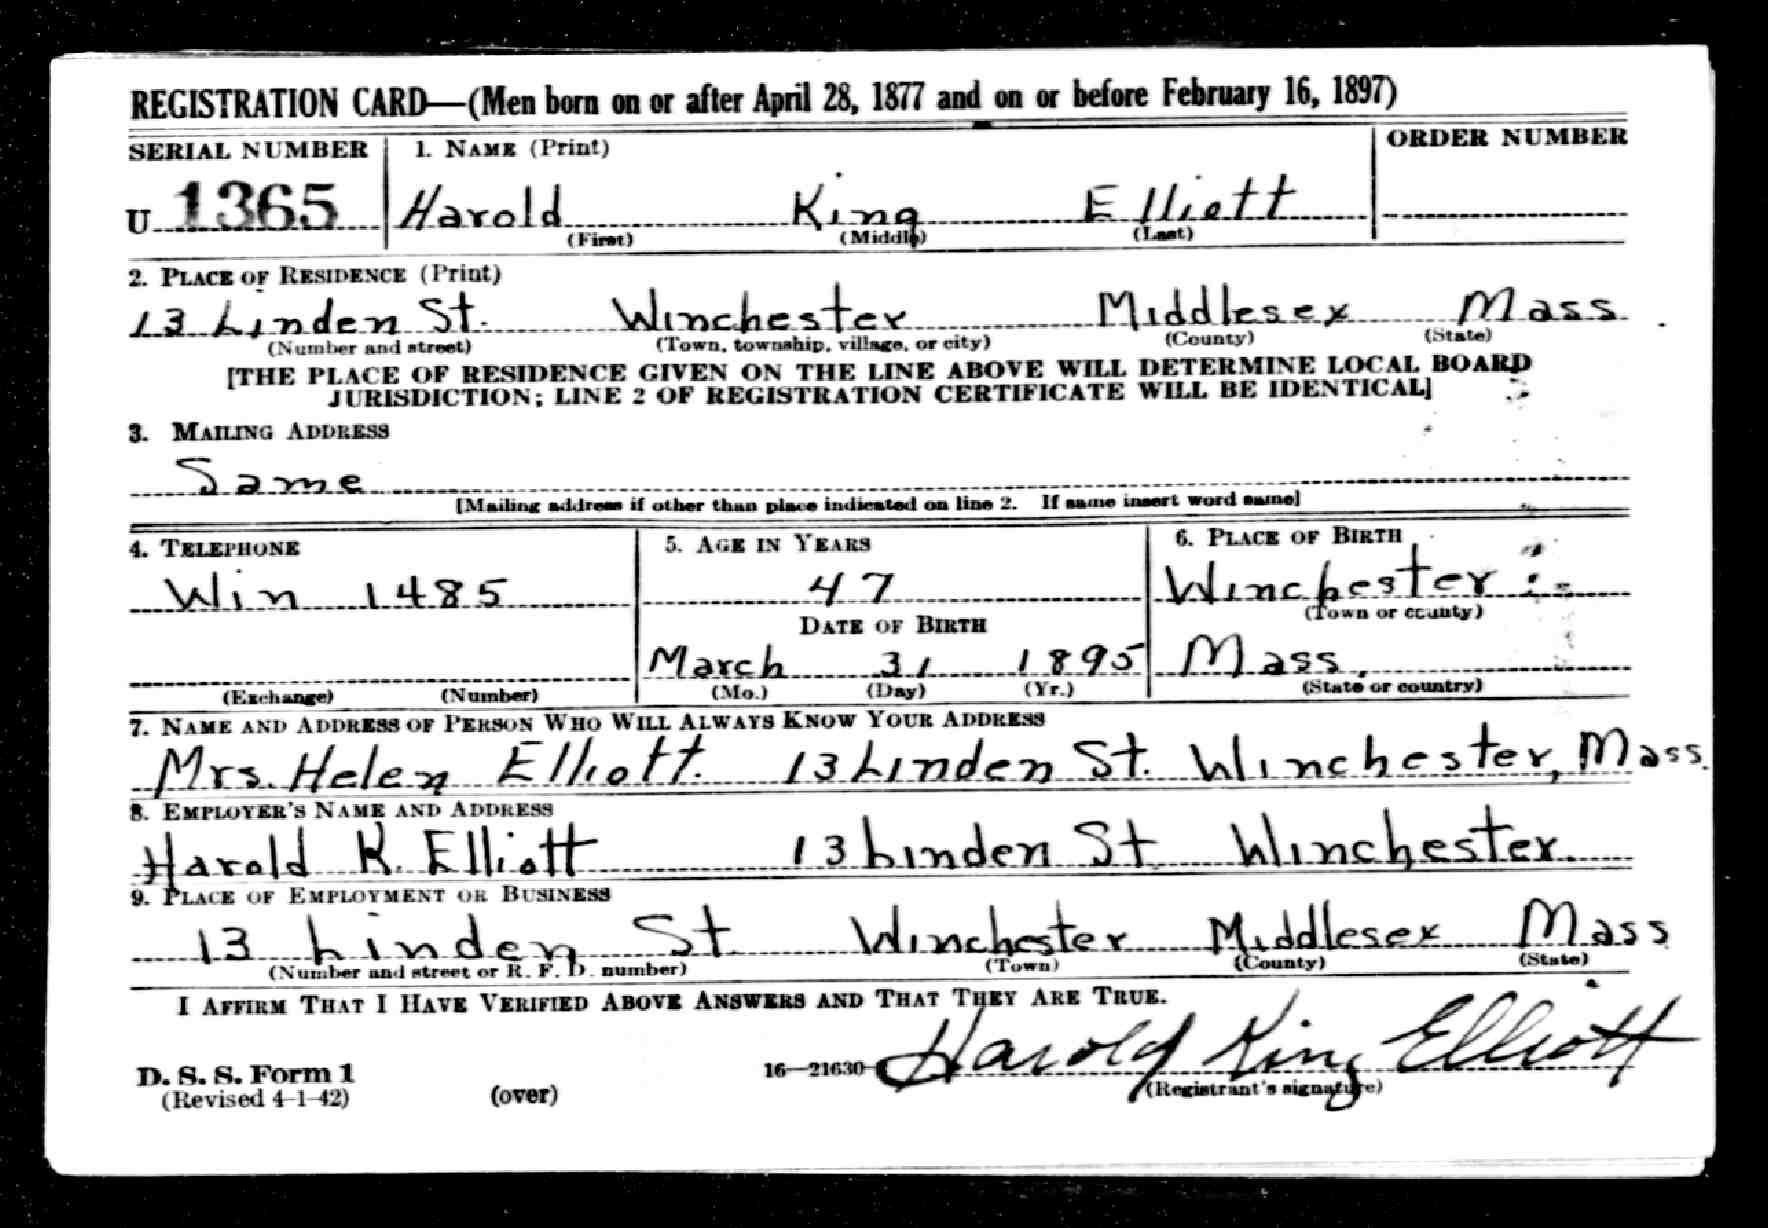 REGISTRATION CARD—(Men born on or after April 28, 1877 and on or before February 16, 1897)
SERIAL NUMBER 1. NAME (Print) ORDER NUMBER
U 1365 Harold King Elliott
(First) (Middle) (Last)
2. PLACE OF RESIDENCE (Print)
13 Linden St. Winchester Middlesex Mass.
(Number and street) (Town, township, village, or city) (County) (State)
[THE PLACE OF RESIDENCE GIVEN ON THE LINE ABOVE WILL DETERMINE LOCAL BOARD
JURISDICTION; LINE 2 OF REGISTRATION CERTIFICATE WILL BE IDENTICAL]
3. MAILING ADDRESS
Same
[Mailing address if other than place indicated on line 2. If same insert word same]
4. TELEPHONE 5. AGE IN YEARS 6. PLACE OF BIRTH
Win 1485 47 Winchester
DATE OF BIRTH (Town or county)
March 31 1895 Mass.
(Exchange) (Number) (Mo.) (Day) (Yr.) (State or country)
7. NAME AND ADDRESS OF PERSON WHO WILL ALWAYS KNOW YOUR ADDRESS
Mrs. Helen Elliott. 13 Linden St. Winchester, Mass.
8. EMPLOYER'S NAME AND ADDRESS
Harold K. Elliott 13 Linden St Winchester
9. PLACE OF EMPLOYMENT OR BUSINESS
13 Linden St Winchester Middlesex Mass
(Number and street or R. F. D. number) (Town) (County) (State)
I AFFIRM THAT I HAVE VERIFIED ABOVE ANSWERS AND THAT THEY ARE TRUE.
Harold King Elliott
D. S. S. Form 1 16—21630 (Registrant's signature)
(Revised 4-1-42) (over)